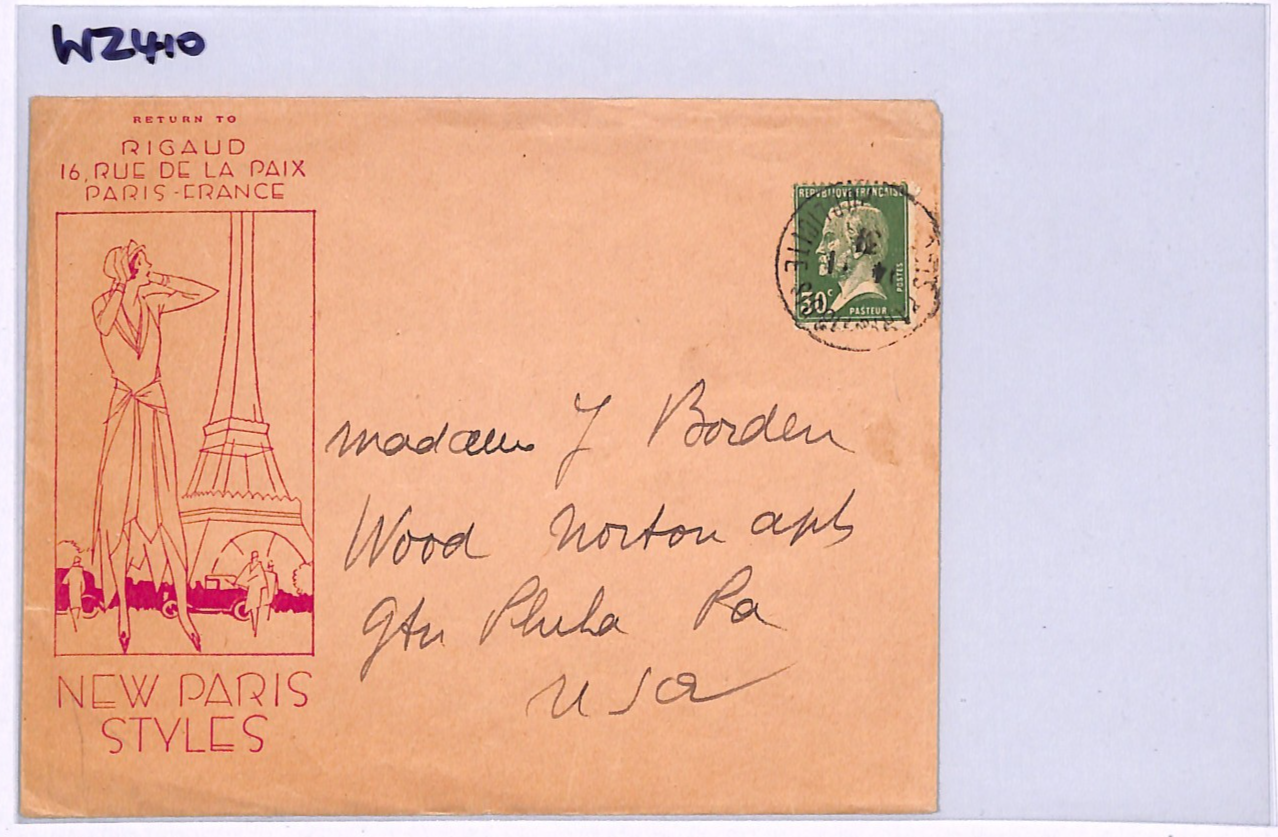 WZ410
RETURN TO
RIGAUD
16, RUE DE LA PAIX
PARIS - FRANCE
REPVBLIQVE FRANÇAISE
POSTES
30c
PASTEUR
Madame J Borden
Wood Norton apts
gtn Phila Pa
USA
NEW PARIS
STYLES